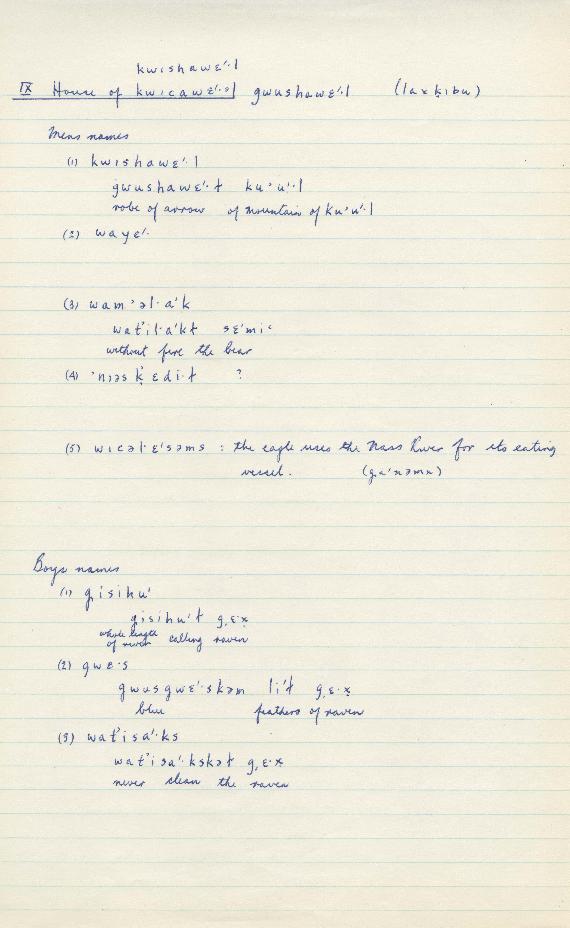 kwishawɛ'·l
IX House of kwicawɛ'·ɛl gwushawɛ'·l (laxḳibu)
Mens names
(1) kwishawɛ'·l
gwushawɛ'·ł ku'u'·l
robe of arrow of mountain of ku'u'·l
(2) wayɛ'·
(3) wam'əl·a'k
wat'il·a'kł sɛ'mi'
without fire the bear
(4) 'niəsḳɛdi·ł ?
(5) wicəl·ɛ'səms : the eagle uses the Nass River for its eating
vessel. (g̣a'nəmx)
Boys names
(1) g̣isihu'
g̣isihu'ł g̣ɛ·x̣
whole length
of river calling raven
(2) gwɛ·s
gwusgwɛ'·skəm li'ł g̣ɛ·x̣
blue feathers of raven
(3) wat'isa'·ks
wat'isa'·kskəł g̣ɛ·x
never clean the raven